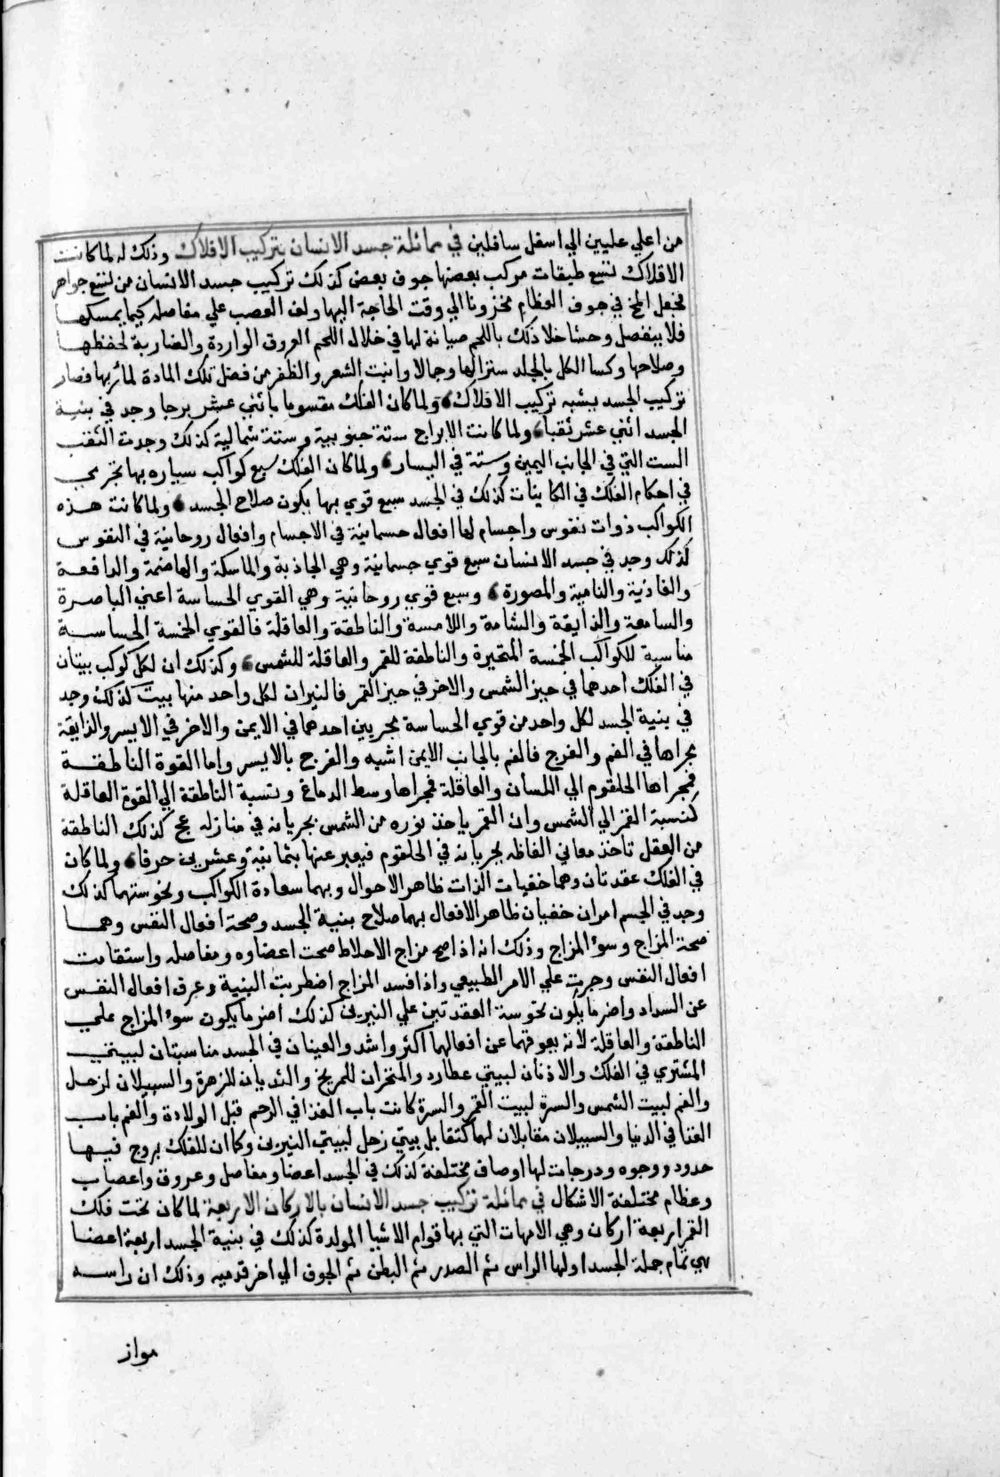 من اعلي عليين الي اسفل سافلين في مماثلة جسد الانسان بتركيب الافلاك وذلك انه لما كانت
الافلاك تسع طبقات مركب بعضها جوف بعض كذلك تركيب جسد الانسان من تسع جواهر
فجعل المخ في جوف العظام مخزونا الي وقت الحاجة اليها ولف العصب علي مفاصله كيما يمسكها
فلا ينفصل وحشا خلا ذلك باللحم صيانة لها في خلال اللحم العروق الواردة والضاربة لحفظها
وصلاحها وكسا الكل بالجلد سترا لها وجمالا وانبت الشعر والظفر من فضل تلك المادة لماربها فصار
تركيب الجسد يشبه تركيب الافلاك ولما كان الفلك مقسوما باثني عشر برجا وجد في بنية
الجسد اثني عشر ثقبا ولما كانت الابراج ستة جنوبية وستة شمالية كذلك وجدت الثقب
الست التي في الجانب اليمين وستة في اليسار ولما كان الفلك سبع كواكب سياره بها تجري
في احكام الفلك في الكاينات كذلك في الجسد سبع قوي بها يكون صلاح الجسد ولما كانت هذه
الكواكب ذوات نفوس واجسام لها افعال جسمانية في الاجسام وافعال روحانية في النفوس
كذلك وجد في جسد الانسان سبع قوي جسمانية وهي الجاذبة والماسكة والهاضمة والدافعة
والغاذية والنامية والمصورة وسبع قوي روحانية وهي القوي الحساسة اعني الباصرة
والسامعة والذايقة والشامة واللامسة والناطقة والعاقلة فالقوي الخمسة الحساسة
مناسبة للكواكب الخمسة المتحيرة والناطقة للقمر والعاقلة للشمس وكذلك ان لكل كوكب بيتان
في الفلك احدهما في حيز الشمس والاخر في حيز القمر فالنيران لكل واحد منها بيت كذلك وجد
في بنية الجسد لكل واحد من قوي الحساسة مجريين احدهما في الايمن والاخر في الايسر والذايقة
مجراها في الفم والفرج فالفم بالجانب الايمن اشبه والفرج بالايسر واما القوة الناطقة
فمجراها الحلقوم الي اللسان والعاقلة فمجراها وسط الدماغ ونسبة الناطقة الي القوة العاقلة
كنسبة القمر الي الشمس وان القمر ياخذ نوره من الشمس بجريانه في منازله كح كذلك الناطقة
من العقل تاخذ معاني الفاظه بجريانه في الحلقوم فيعبر عنها بثمانية وعشرين حرفا ولما كان
في الفلك عقدتان وهما خفيات الذات ظاهر الاحوال وبهما سعادة الكواكب ونحوستهما كذلك
وجد في الجسم امران خفيان ظاهر الافعال بهما صلاح بنية الجسد وصحة افعال النفس وهما
صحة المزاج وسوء المزاج وذلك انه اذا صح مزاج الاخلاط صحت اعضاوه ومفاصله واستقامت
افعال النفس وجرت علي الامر الطبيعي واذا فسد المزاج اضطربت البنية وعرق افعال النفس
عن السداد واضر ما يكون نحوسة العقدتين علي النيرين كذلك اضر ما يكون سوء المزاج علي
الناطقة والعاقلة لانه يعوقهما عن افعالهما اكثر واشد والعينان في الجسد مناسبتان لبيتي
المشتري في الفلك والاذنان لبيتي عطارد والمنخران للمريخ والثديان للزهرة والسبيلان لزحل
والفم لبيت الشمس والسرة لبيت القمر والسرة كانت باب الغذا في الرحم قبل الولادة والفم باب
الغذا في الدنيا والسبيلان مقابلان لهما كتقابل بيتي زحل لبيتي النيرين وكما ان للفلك بروج فيها
حدود ووجوه ودرجات لها اوصاف مختلفة كذلك في الجسد اعضا ومفاصل وعروق واعصاب
وعظام مختلفة الاشكال في مماثلة تركيب جسد الانسان بالاركان الاربعة لما كان تحت فلك
القمر اربعة اركان وهي الامهات التي بها قوام الاشيا المولدة كذلك في بنية الجسد اربعة اعضا
هي تمام جملة الجسد اولها الراس ثم الصدر ثم البطن ثم الجوف الي اخر قدميه وذلك ان راسه
مواز